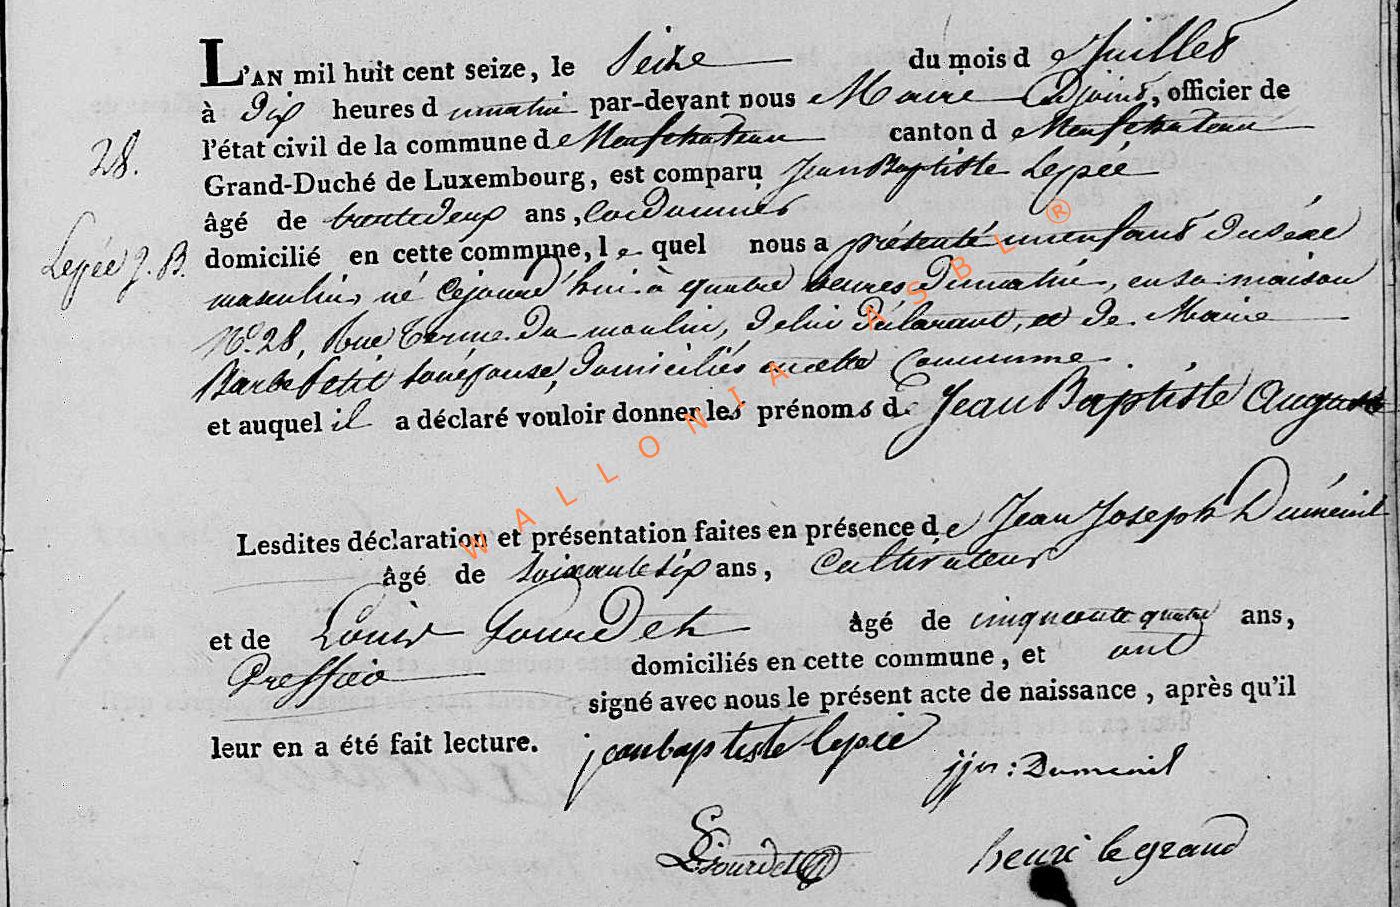 L'AN mil huit cent seize, le Seize du mois de Juillet
à Dix heures du matin par-devant nous Maire Adjoint, officier de
28.
l'état civil de la commune de Neufchateau canton de Neufchateau
Grand-Duché de Luxembourg, est comparu Jean Baptiste Lepée
âgé de trente deux ans, Cordonnier
Lepée J. B.
domicilié en cette commune, le quel nous a présenté un enfant du séxe
masculin, né Cejourd'hui à quatre heures du matin, en sa maison
N.o 28, Rue Terme du moulin, de lui déclarant, et de Marie
Barbe Petit son épouse, Domiciliés en cette Commune.
et auquel il a déclaré vouloir donner les prénoms de Jean Baptiste Auguste
Lesdites déclaration et présentation faites en présence de Jean Joseph Duménil
âgé de soixante six ans, Cultivateur
et de Louis Gourdet âgé de cinquante quatre ans,
domiciliés en cette commune, et ont
signé avec nous le présent acte de naissance, après qu'il
leur en a été fait lecture.
jean baptiste lepée
jjn: Dumenil
L Gourdet
henri legrand
WALLONIA ASBL ®